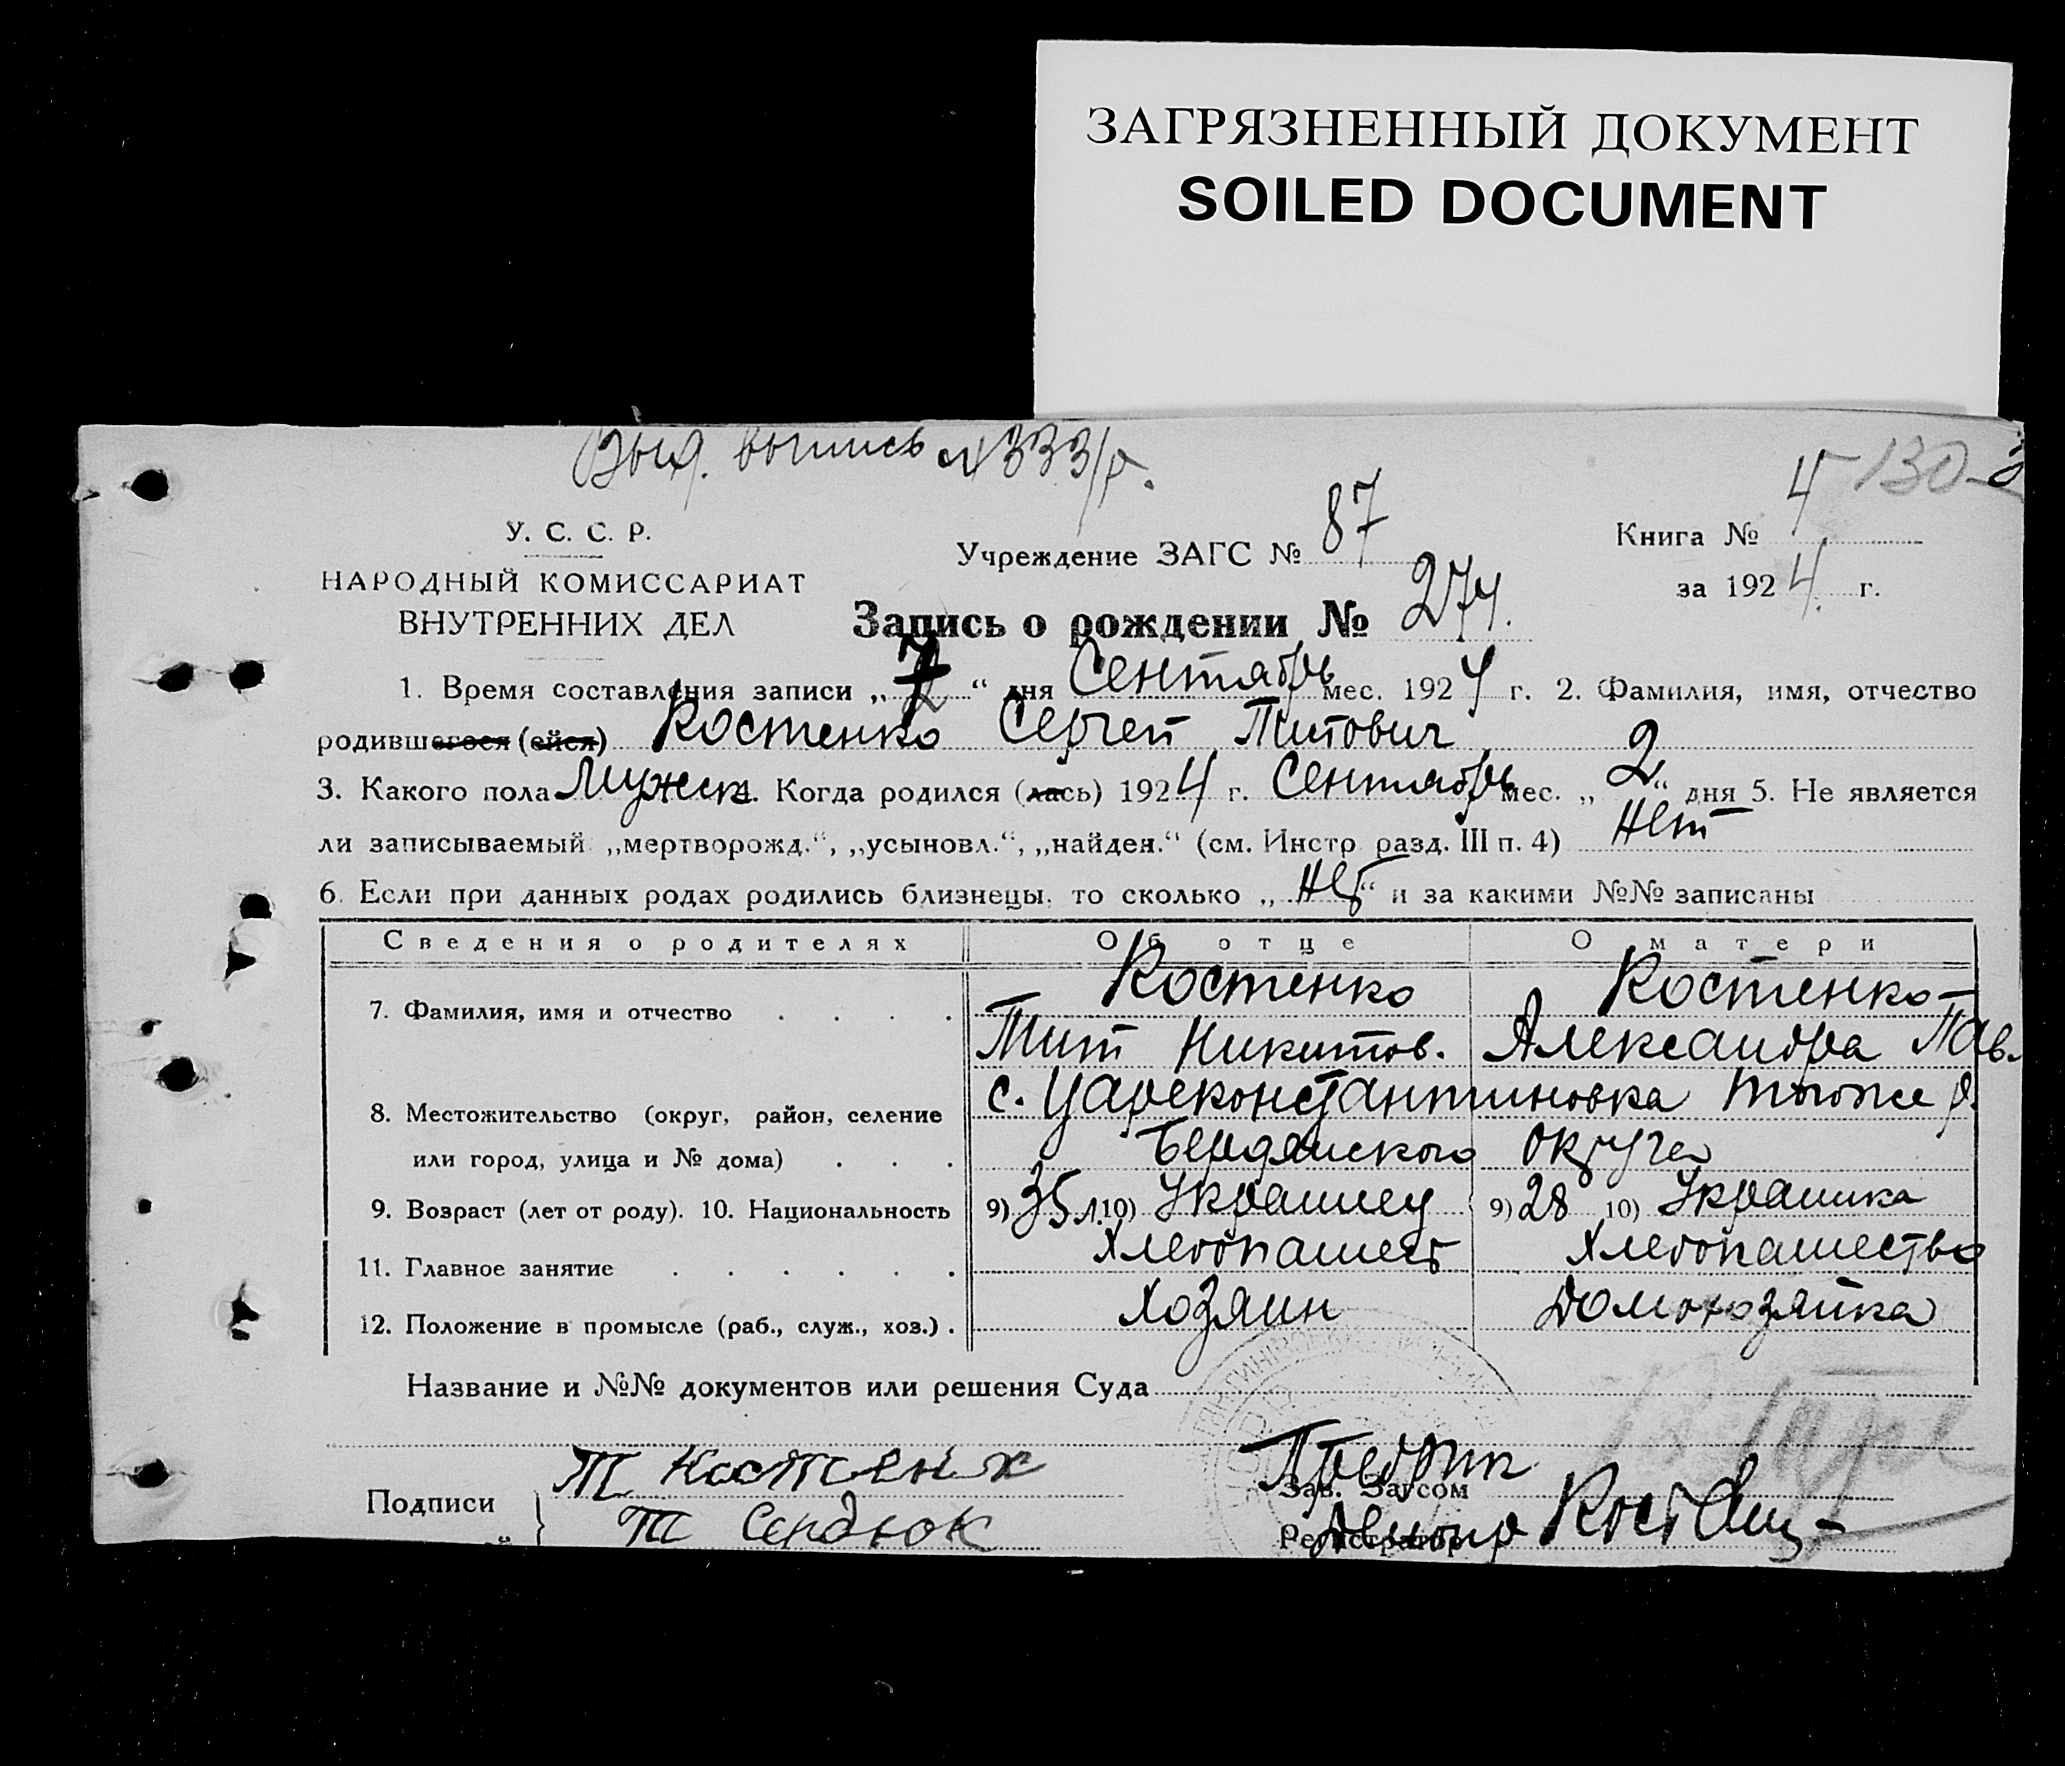 ЗАГРЯЗНЕННЫЙ ДОКУМЕНТ
SOILED DOCUMENT
Выд. выпись № 333/р.
130
У. С. С. Р.
НАРОДНЫЙ КОМИССАРИАТ
ВНУТРЕННИХ ДЕЛ
Учреждение ЗАГС № 87
Книга № 4
за 1924 г.
Запись о рождении № 274.
1. Время составления записи „7“ дня Сентябрь мес. 1924 г. 2. Фамилия, имя, отчество
родившегося (ейся) Костенко Сергей Титович
3. Какого пола Мужск. Когда родился (лась) 1924 г. Сентябрь мес. „2“ дня 5. Не является
ли записываемый „мертворожд.“, „усыновл.“, „найден.“ (см. Инстр разд. III п. 4) Нет
6. Если при данных родах родились близнецы, то сколько „Нет“ и за какими №№ записаны
Сведения о родителях Об отце О матери
Костенко Костенко
7. Фамилия, имя и отчество
Тит Никитов. Александра Пав.
с. Цареконстантиновка тогоже р.
8. Местожительство (округ, район, селение
или город, улица и № дома) Бердянского округа
9. Возраст (лет от роду). 10. Национальность 9) 35 л. 10) Украинец 9) 28 10) Украинка
11. Главное занятие Хлебопашест Хлебопашество
12. Положение в промысле (раб., служ., хоз.) Хозяин Домохозяйка
Название и №№ документов или решения Суда
Подписи Т Костенк
Т Сердюк
Зав. Загсом
Регистратор